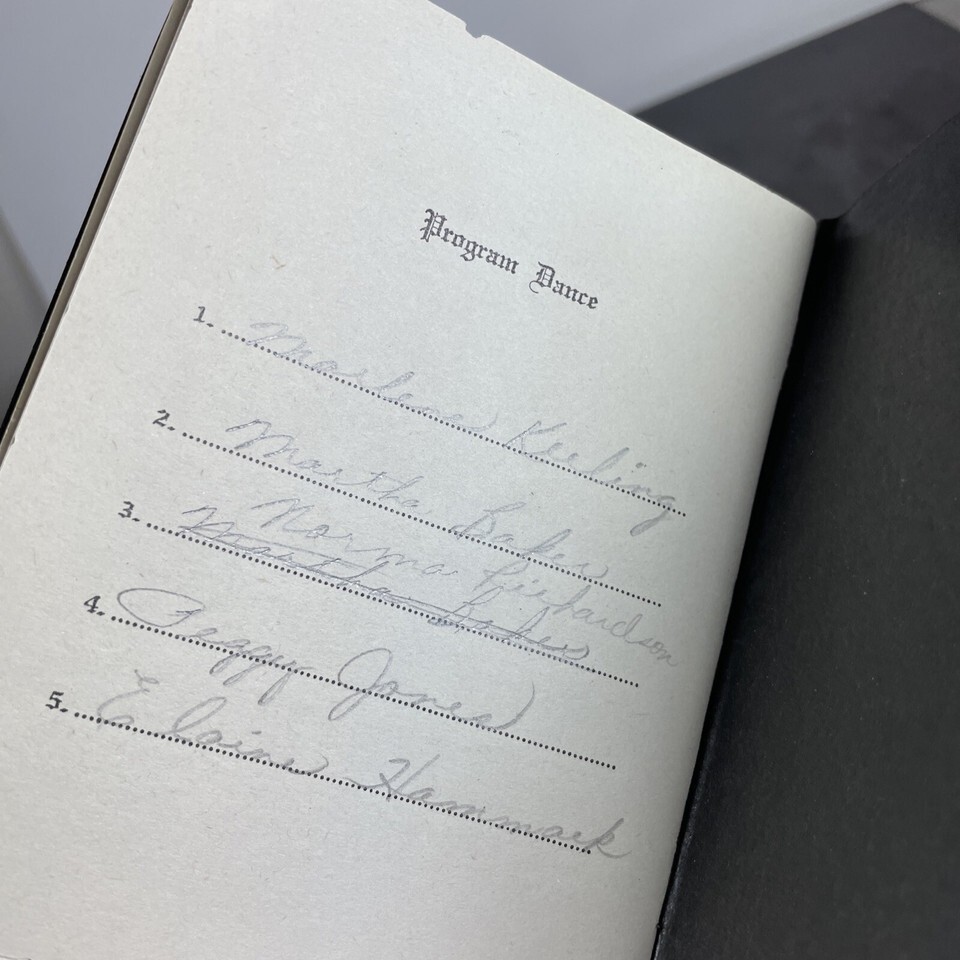 Program Dance
1. Marlene Keeling
2. Martha Baker
Norma Richardson
3. Martha Baker
4. Peggy Jones
5. Elaine Hammack